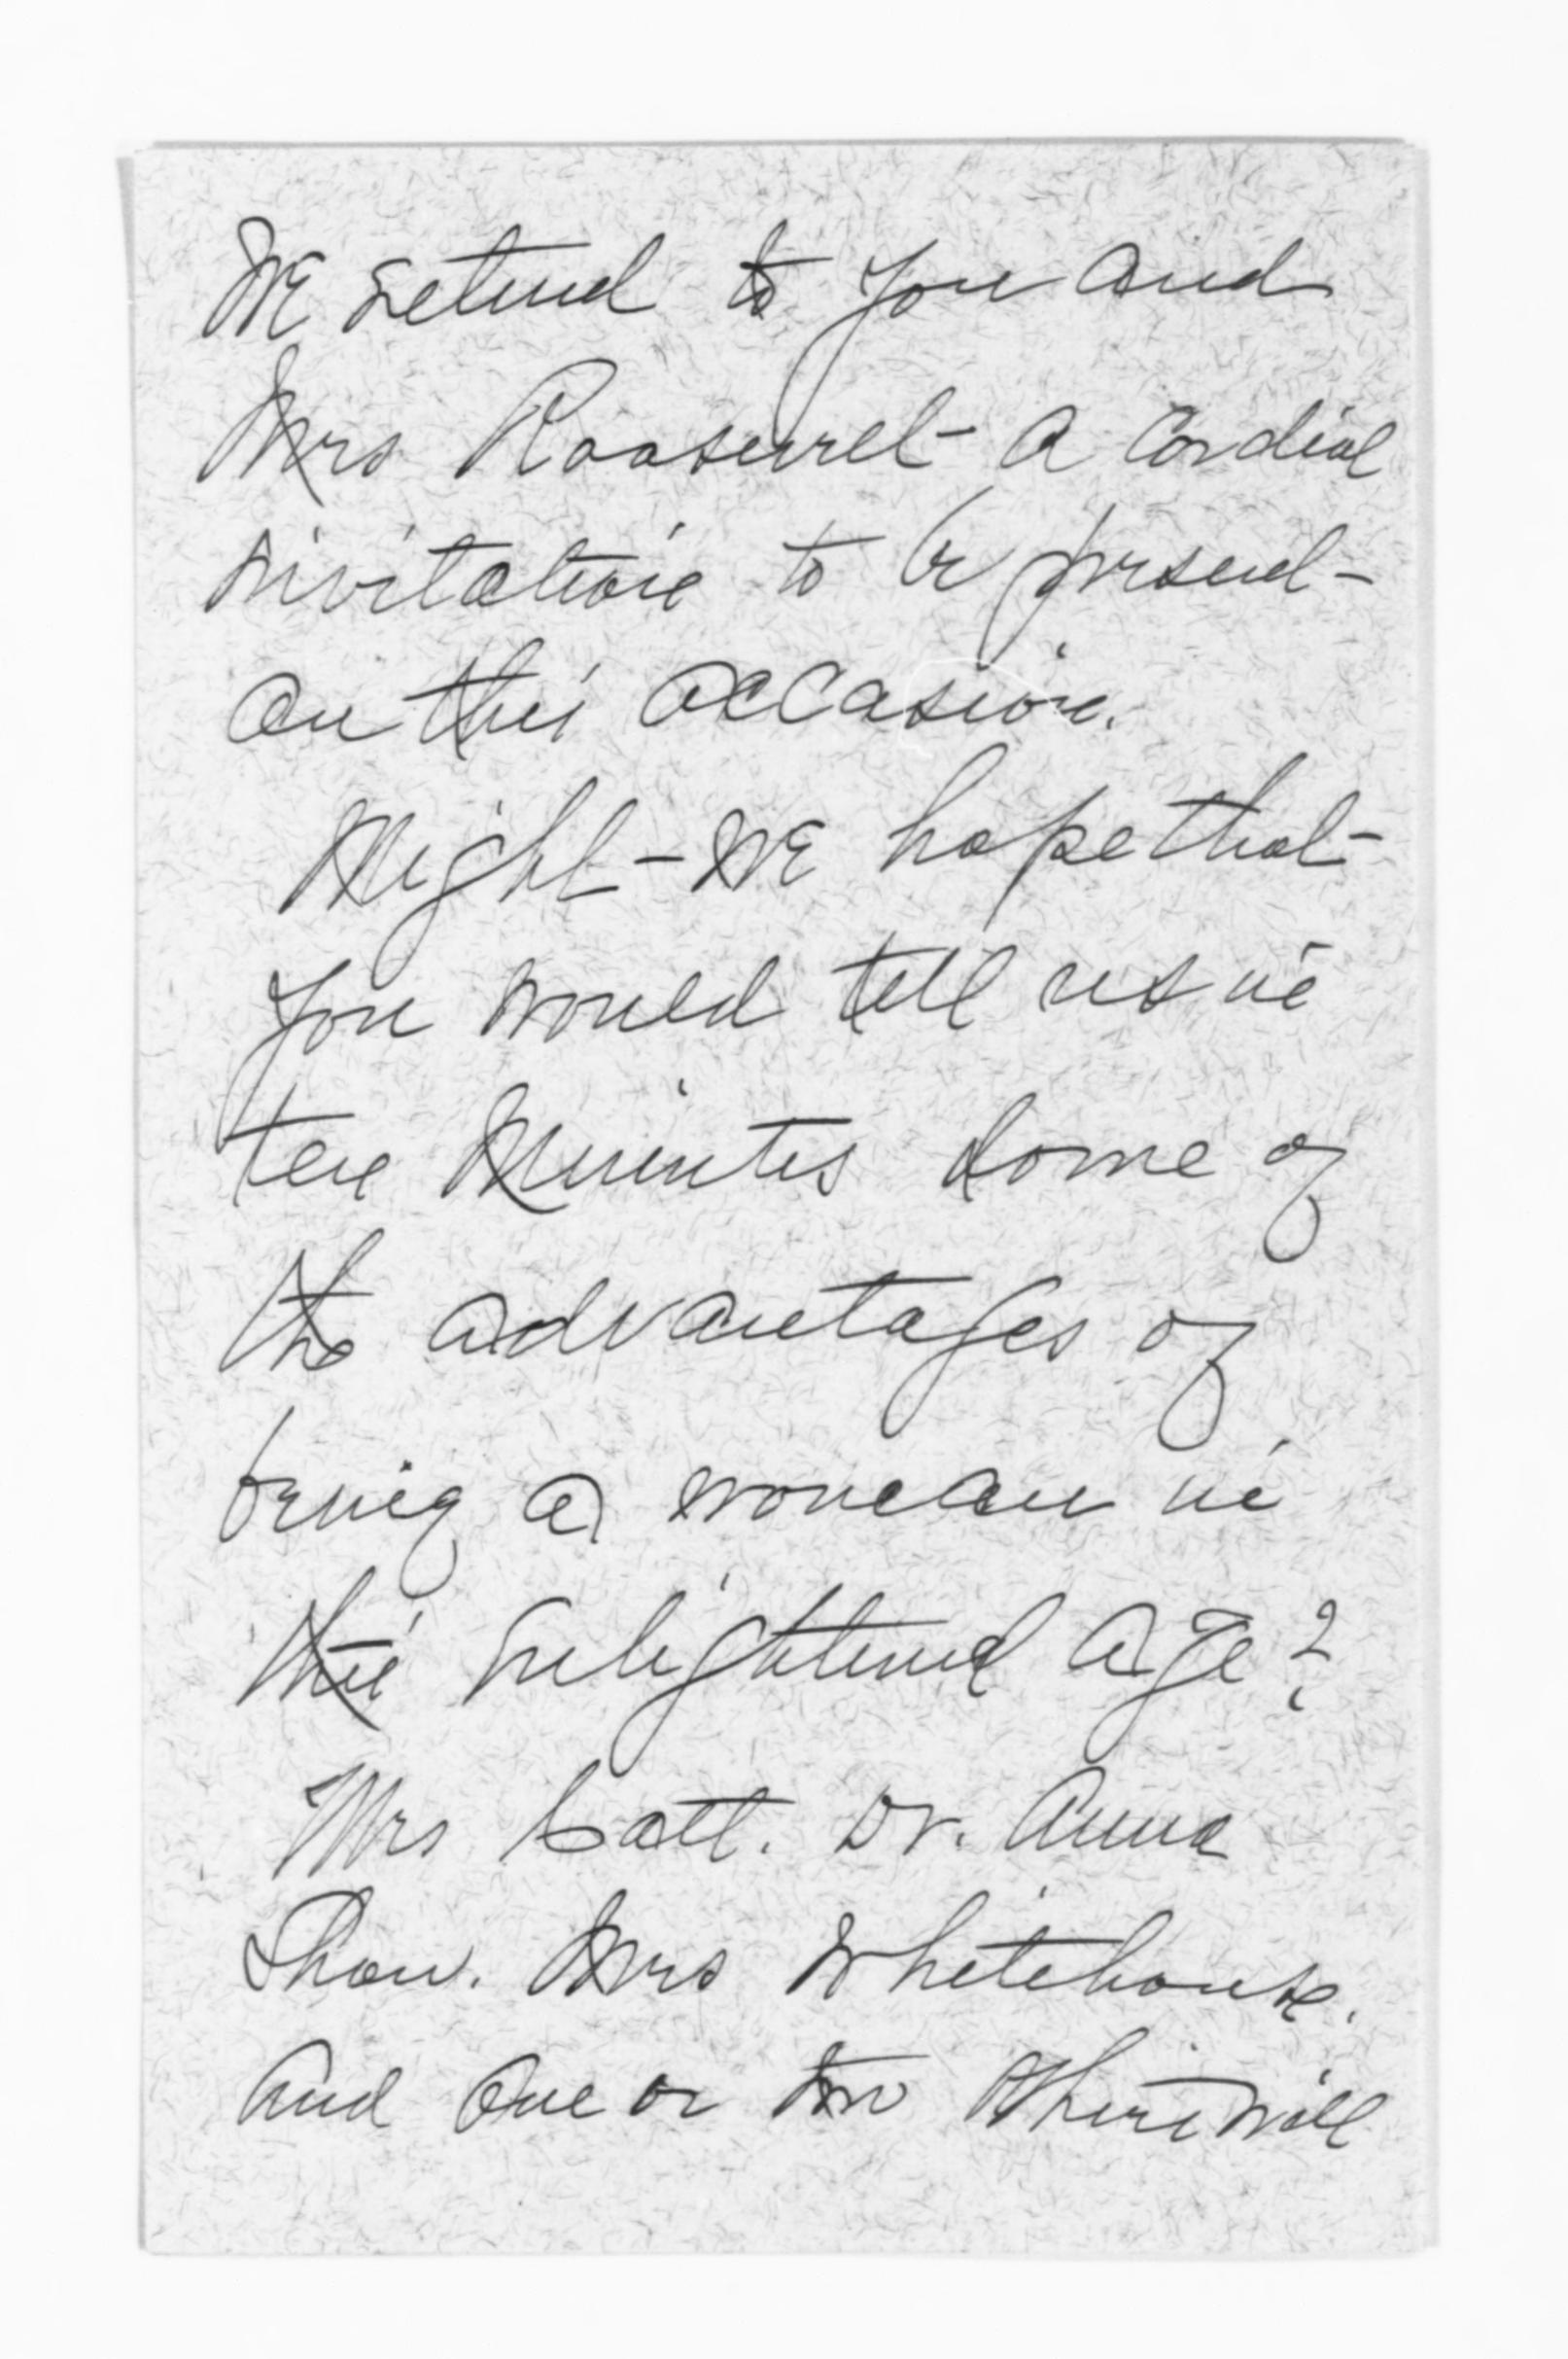 We extend to you and
Mrs Roosevelt a cordial
invitation to be present
on this occasion.
Might we hope that
you would tell us in
ten minutes some of
the advantages of
being a woman in
this enlightened age?
Mrs Catt. Dr. Anna
Shaw. Mrs Whitehouse.
and one or two others will